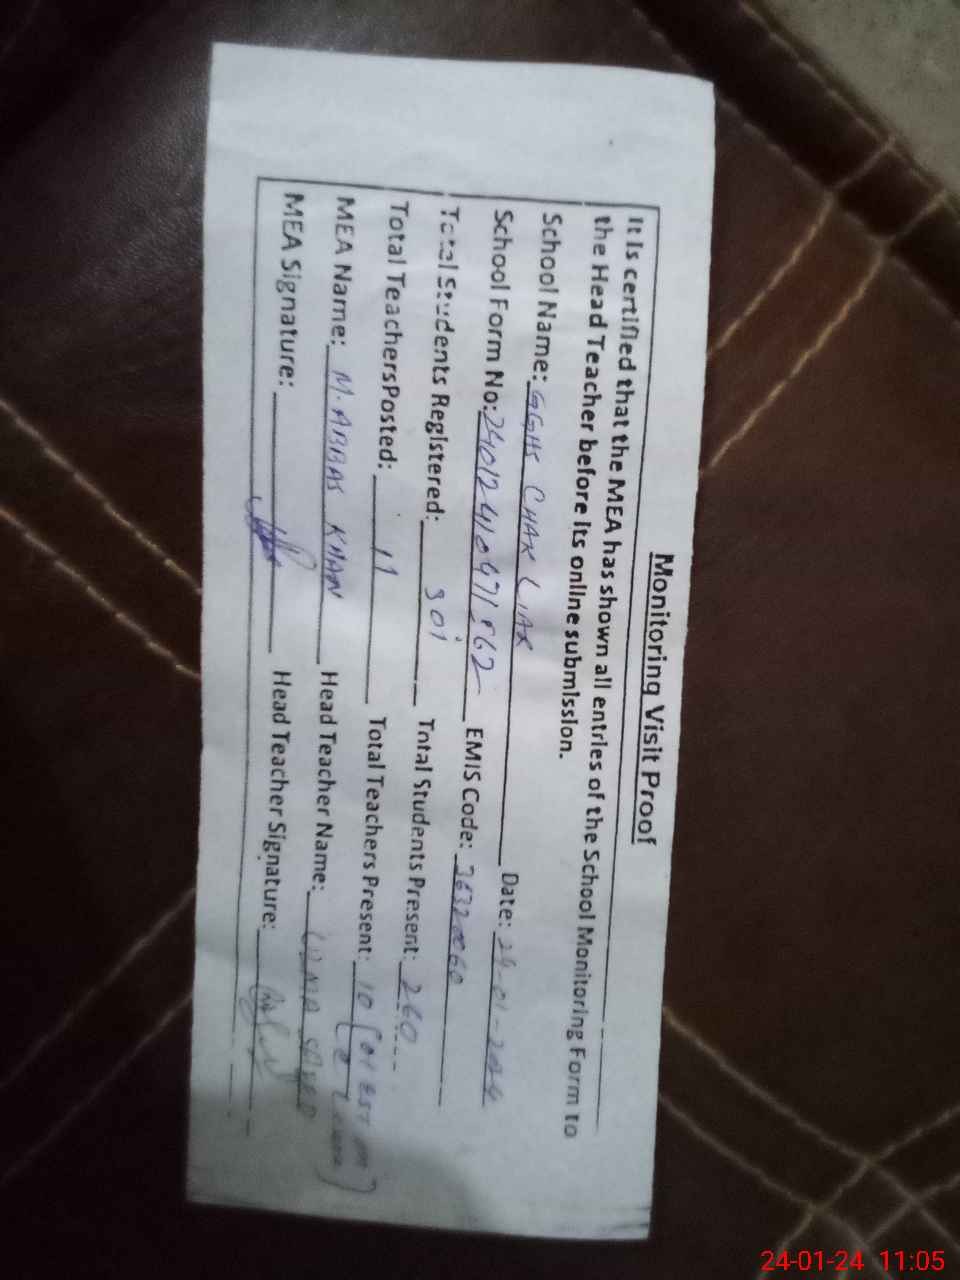 Monitoring Visit Proof
It is certified that the MEA has shown all entries of the School Monitoring Form to
the Head Teacher before its online submission.
School Name: GGHS CHAK LIAK Date: 24-01-2024
School Form No: EMIS Code:
Total Students Registered: 301 Total Students Present: 260
Total TeachersPosted: 11 Total Teachers Present: 10
MEA Name: M. ABBAS KHAN Head Teacher Name:
MEA Signature: Head Teacher Signature:
24-01-24 11:05